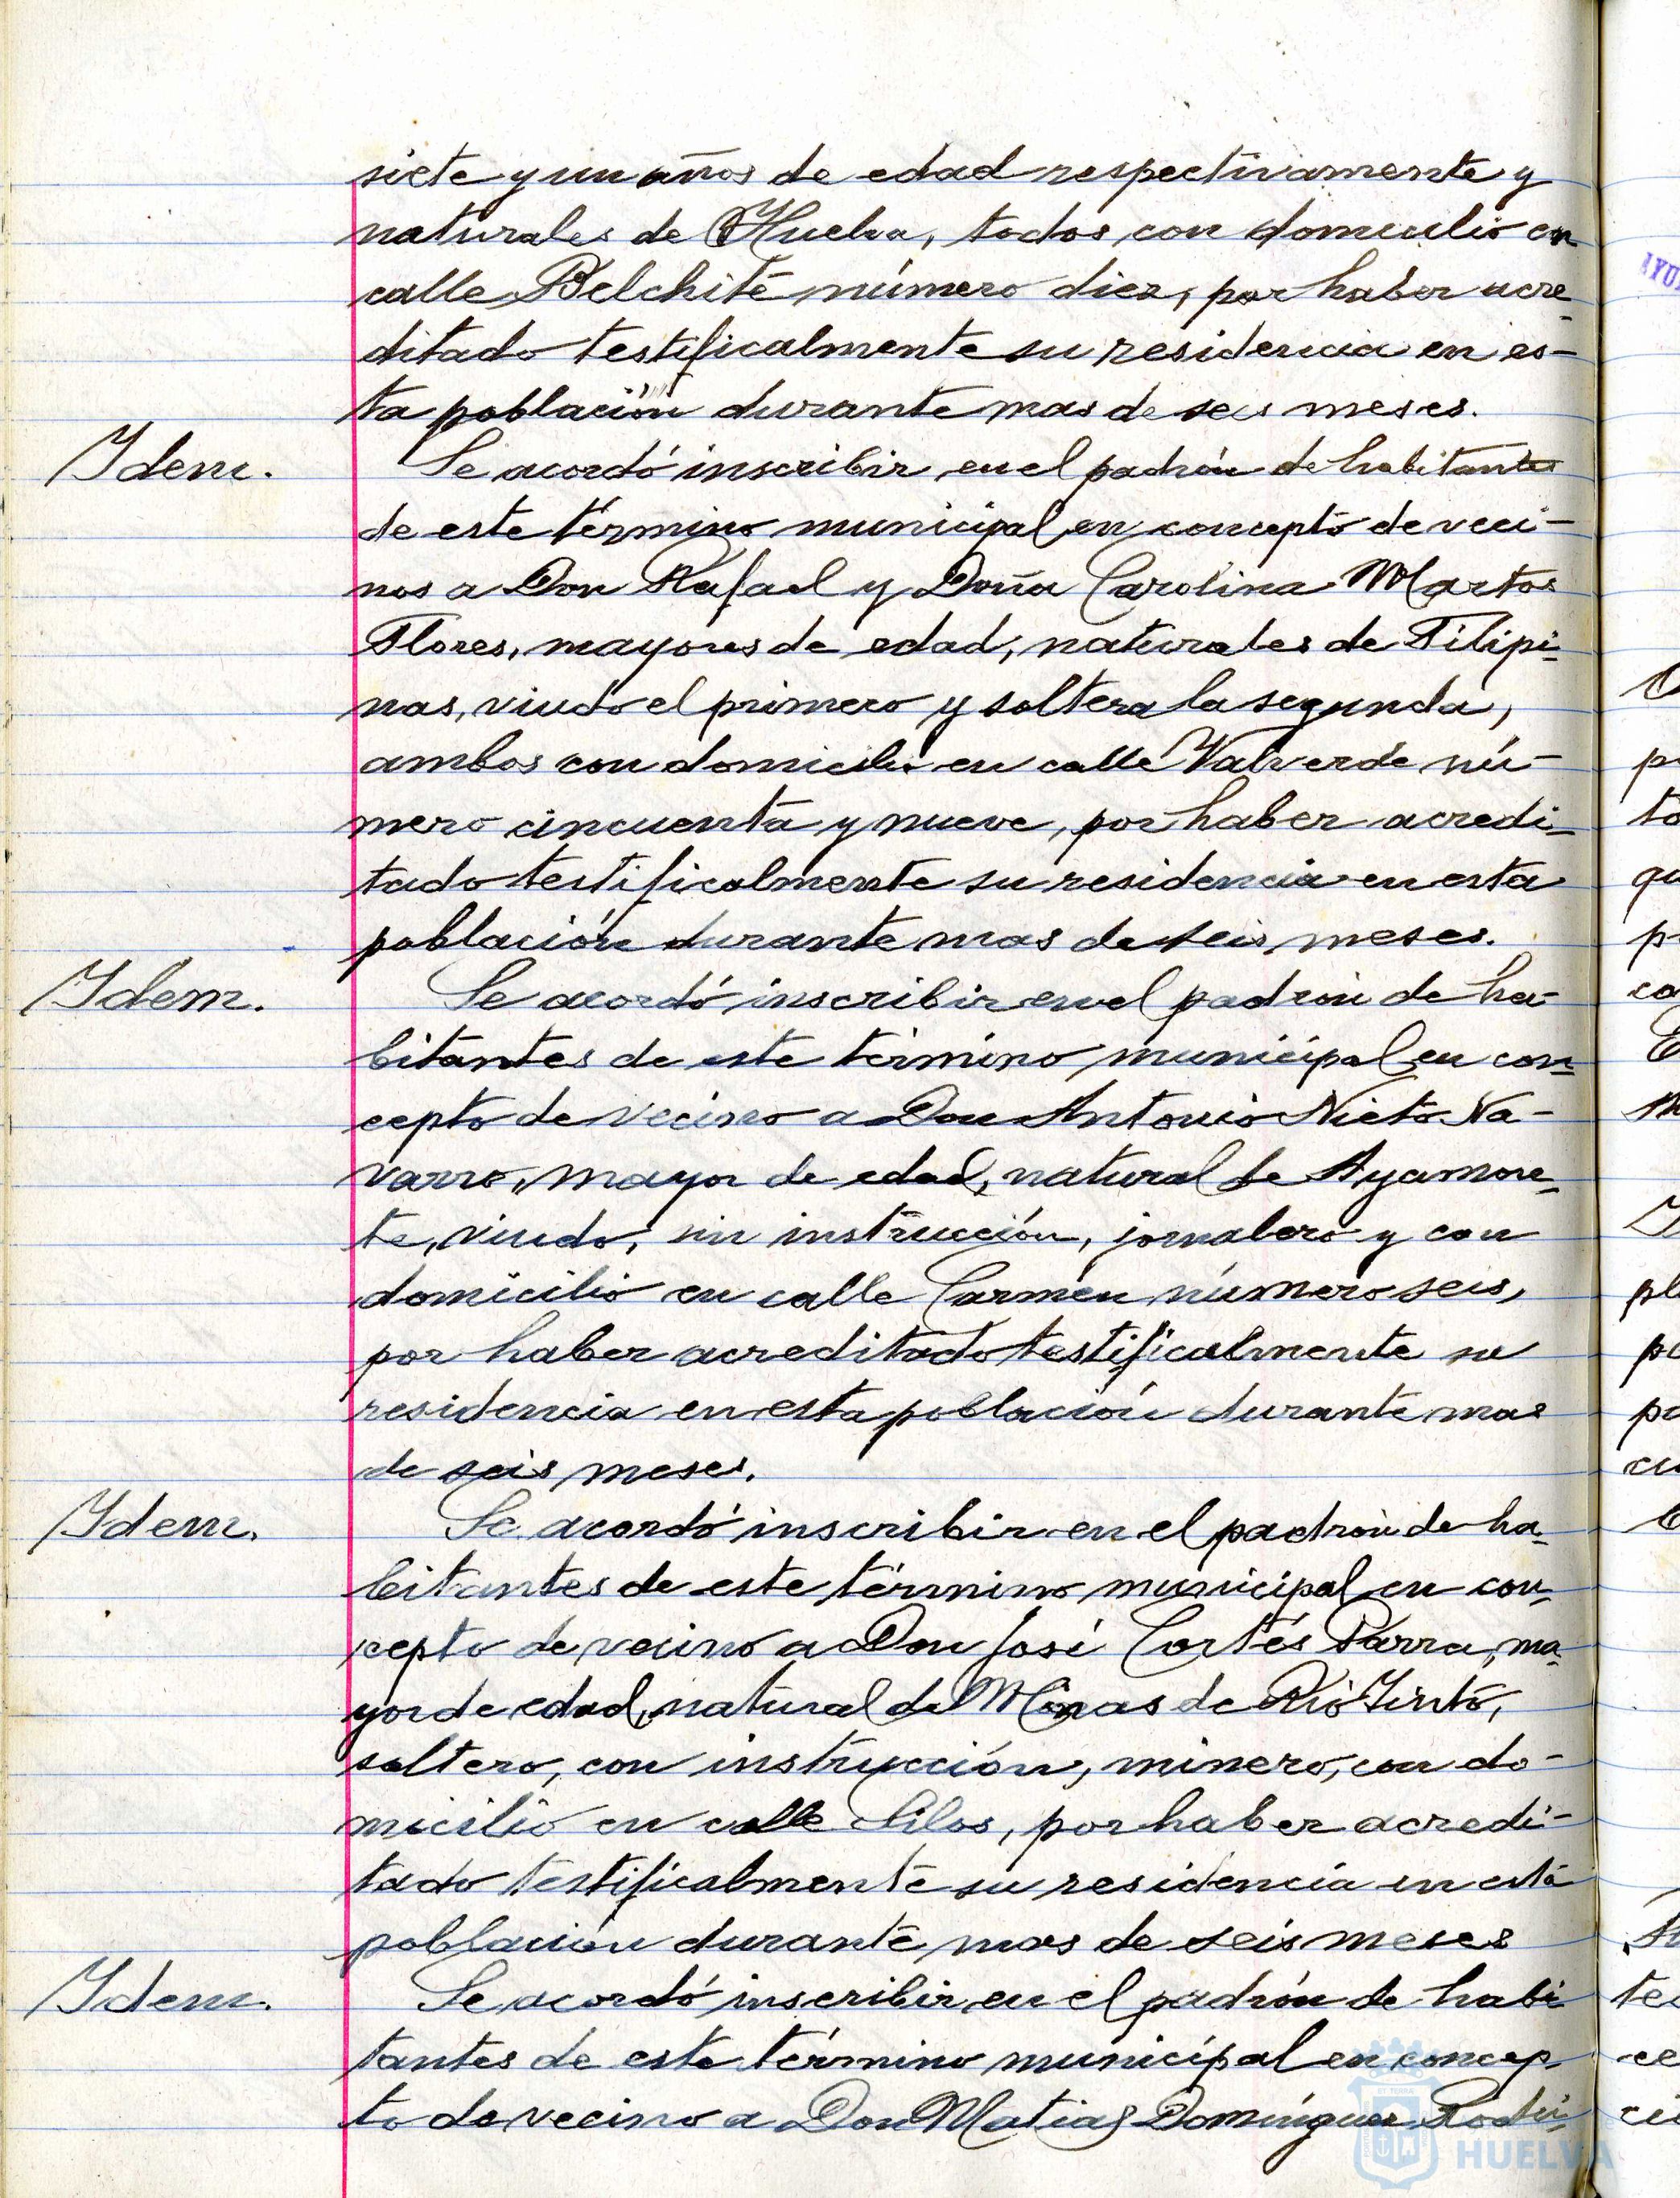 siete y un años de edad respectivamente y
naturales de Huelva, todos con domicilio en
calle Belchite número diez, por haber acre-
ditado testificalmente su residencia en es-
ta población durante mas de seis meses.
Idem. Se acordó inscribir en el padrón de habitantes
de este término municipal en concepto de veci-
nos a Don Rafael y Doña Carolina Martos
Flores, mayores de edad, naturales de Filipi-
nas, viudo el primero y soltera la segunda,
ambos con domicilio en calle Valverde nú-
mero cincuenta y nueve, por haber acredi-
tado testificalmente su residencia en esta
población durante mas de seis meses.
Idem. Se acordó inscribir en el padrón de ha-
bitantes de este término municipal en con-
cepto de vecino a Don Antonio Nieto Na-
varro, mayor de edad, natural de Ayamon-
te, viudo, sin instrucción, jornalero y con
domicilio en calle Carmen número seis,
por haber acreditado testificalmente su
residencia en esta población durante mas
de seis meses.
Idem. Se acordó inscribir en el padrón de ha-
bitantes de este término municipal en con-
cepto de vecino a Don José Cortés Parra, ma-
yor de edad, natural de Minas de Rio Tinto,
soltero, con instrucción, minero, con do-
micilio en calle Silos, por haber acredi-
tado testificalmente su residencia en esta
población durante mas de seis meses
Idem. Se acordó inscribir en el padrón de habi
tantes de este término municipal en concep
to de vecino a Don Matias Domínguez Rodrí-
HUELVA